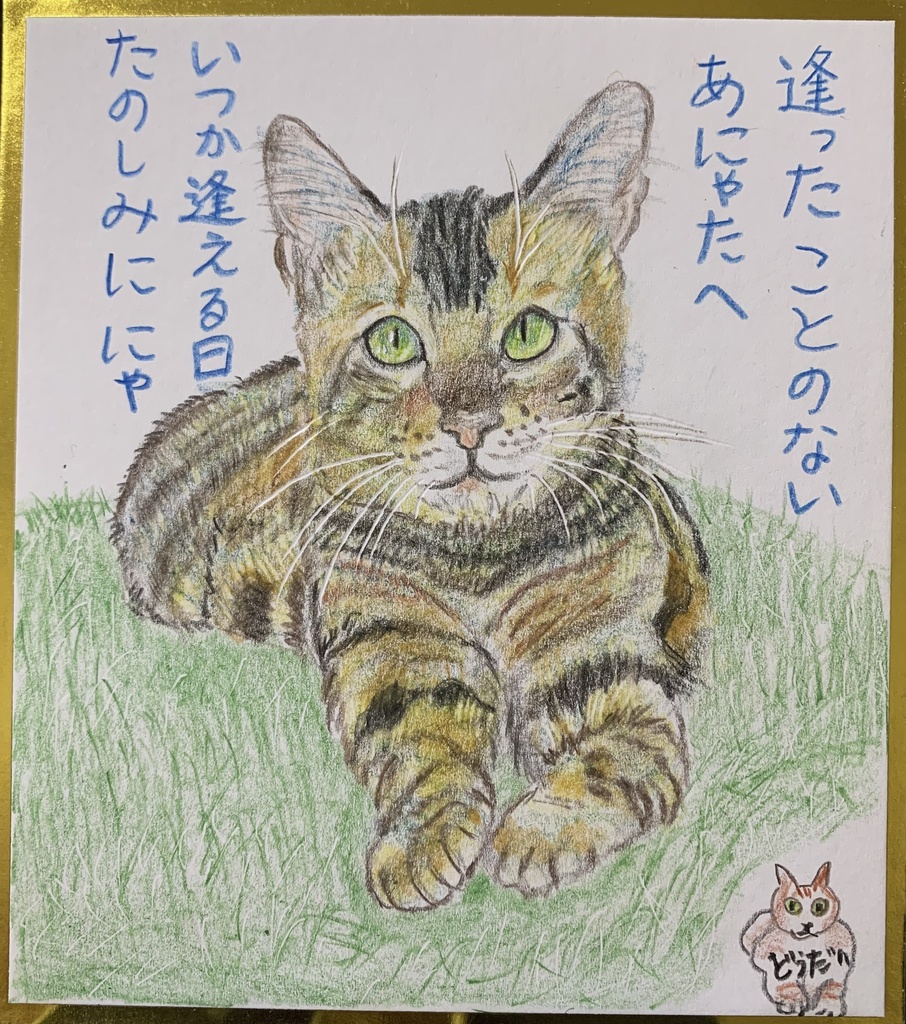 逢ったことのない
あにゃたへ
いつか逢える日
たのしみににゃ
どうだ〃